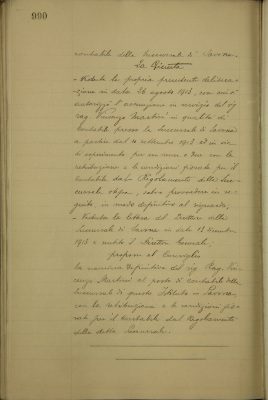 990
contabile della Succursale di Savona.
La Giunta
- Veduta la propria precedente delibera-
zione in data 26 agosto 1913, con cui si
autorizzò l'assunzione in servizio del sig.
rag. Vincenzo Martini in qualità di
contabile presso la Succursale di Savona
a partire dal 1o settembre 1913 ed in via
di esperimento per un mese o due con la
retribuzione e le condizioni fissate per il
contabile dal Regolamento della Suc-
cursale stessa, salvo provvedere in se-
guito in modo definitivo al riguardo;
- Veduta la lettera del Direttore della
Succursale di Savona in data 12 dicembre
1913 e udito il Direttore Generale;
propone al Consiglio
la nomina definitiva del sig. Rag. Vin-
cenzo Martini al posto di contabile della
Succursale di questo Istituto in Savona
con la retribuzione e le condizioni fis-
sate per il contabile dal Regolamento
della detta Succursale.